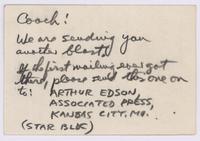 Coach!
We are sending you
another blast!
If the first mailing ever got
there, please send this one on
to: ARTHUR EDSON,
ASSOCIATED PRESS,
KANSAS CITY, MO.
(STAR BLDG)